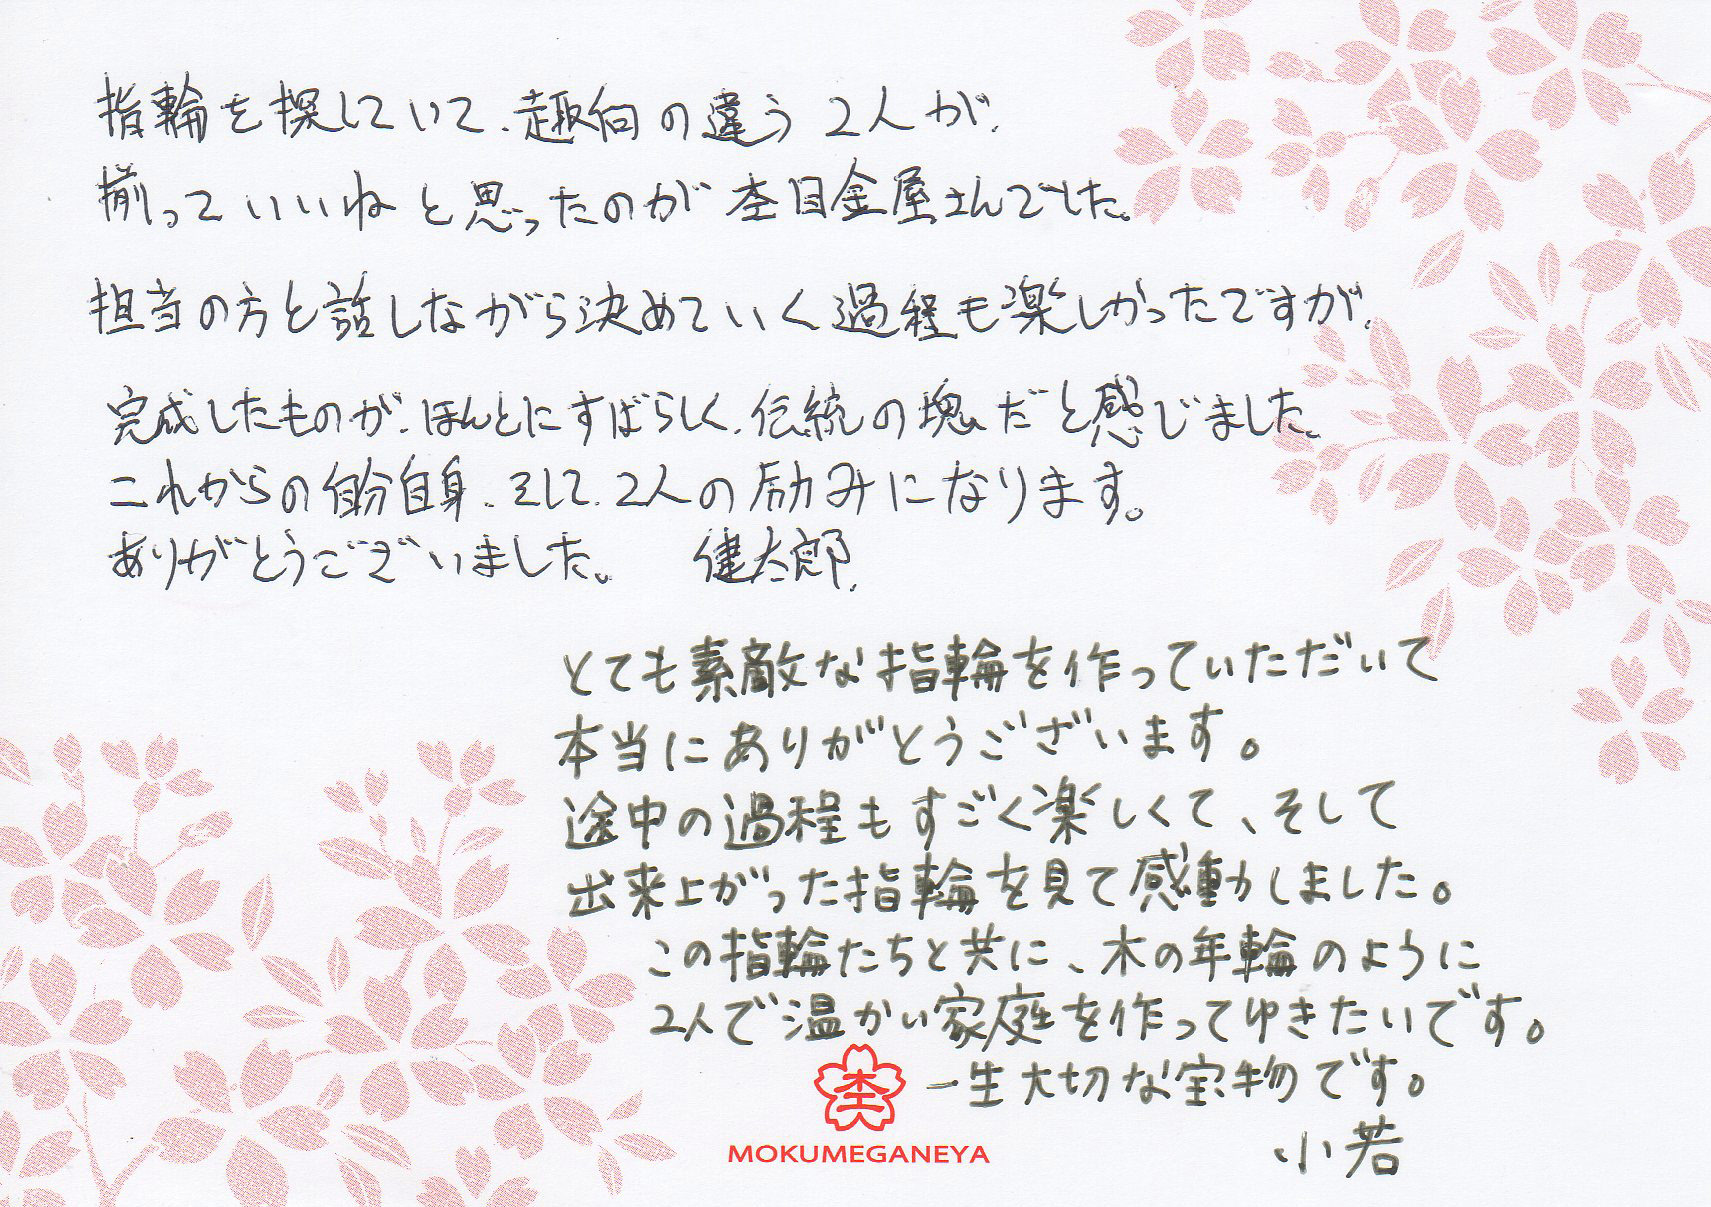 指輪を探していて、趣向の違う2人が、
揃っていいねと思ったのが杢目金屋さんでした。
担当の方と話しながら決めていく過程も楽しかったですが、
完成したものが、ほんとにすばらしく、伝統の塊だと感じました。
これからの自分自身、そして、2人の励みになります。
ありがとうございました。 健太郎.
とても素敵な指輪を作っていただいて
本当にありがとうございます。
途中の過程もすごく楽しくて、そして
出来上がった指輪を見て感動しました。
この指輪たちと共に、木の年輪のように
2人で温かい家庭を作ってゆきたいです。
一生大切な宝物です。
小若
杢
MOKUMEGANEYA